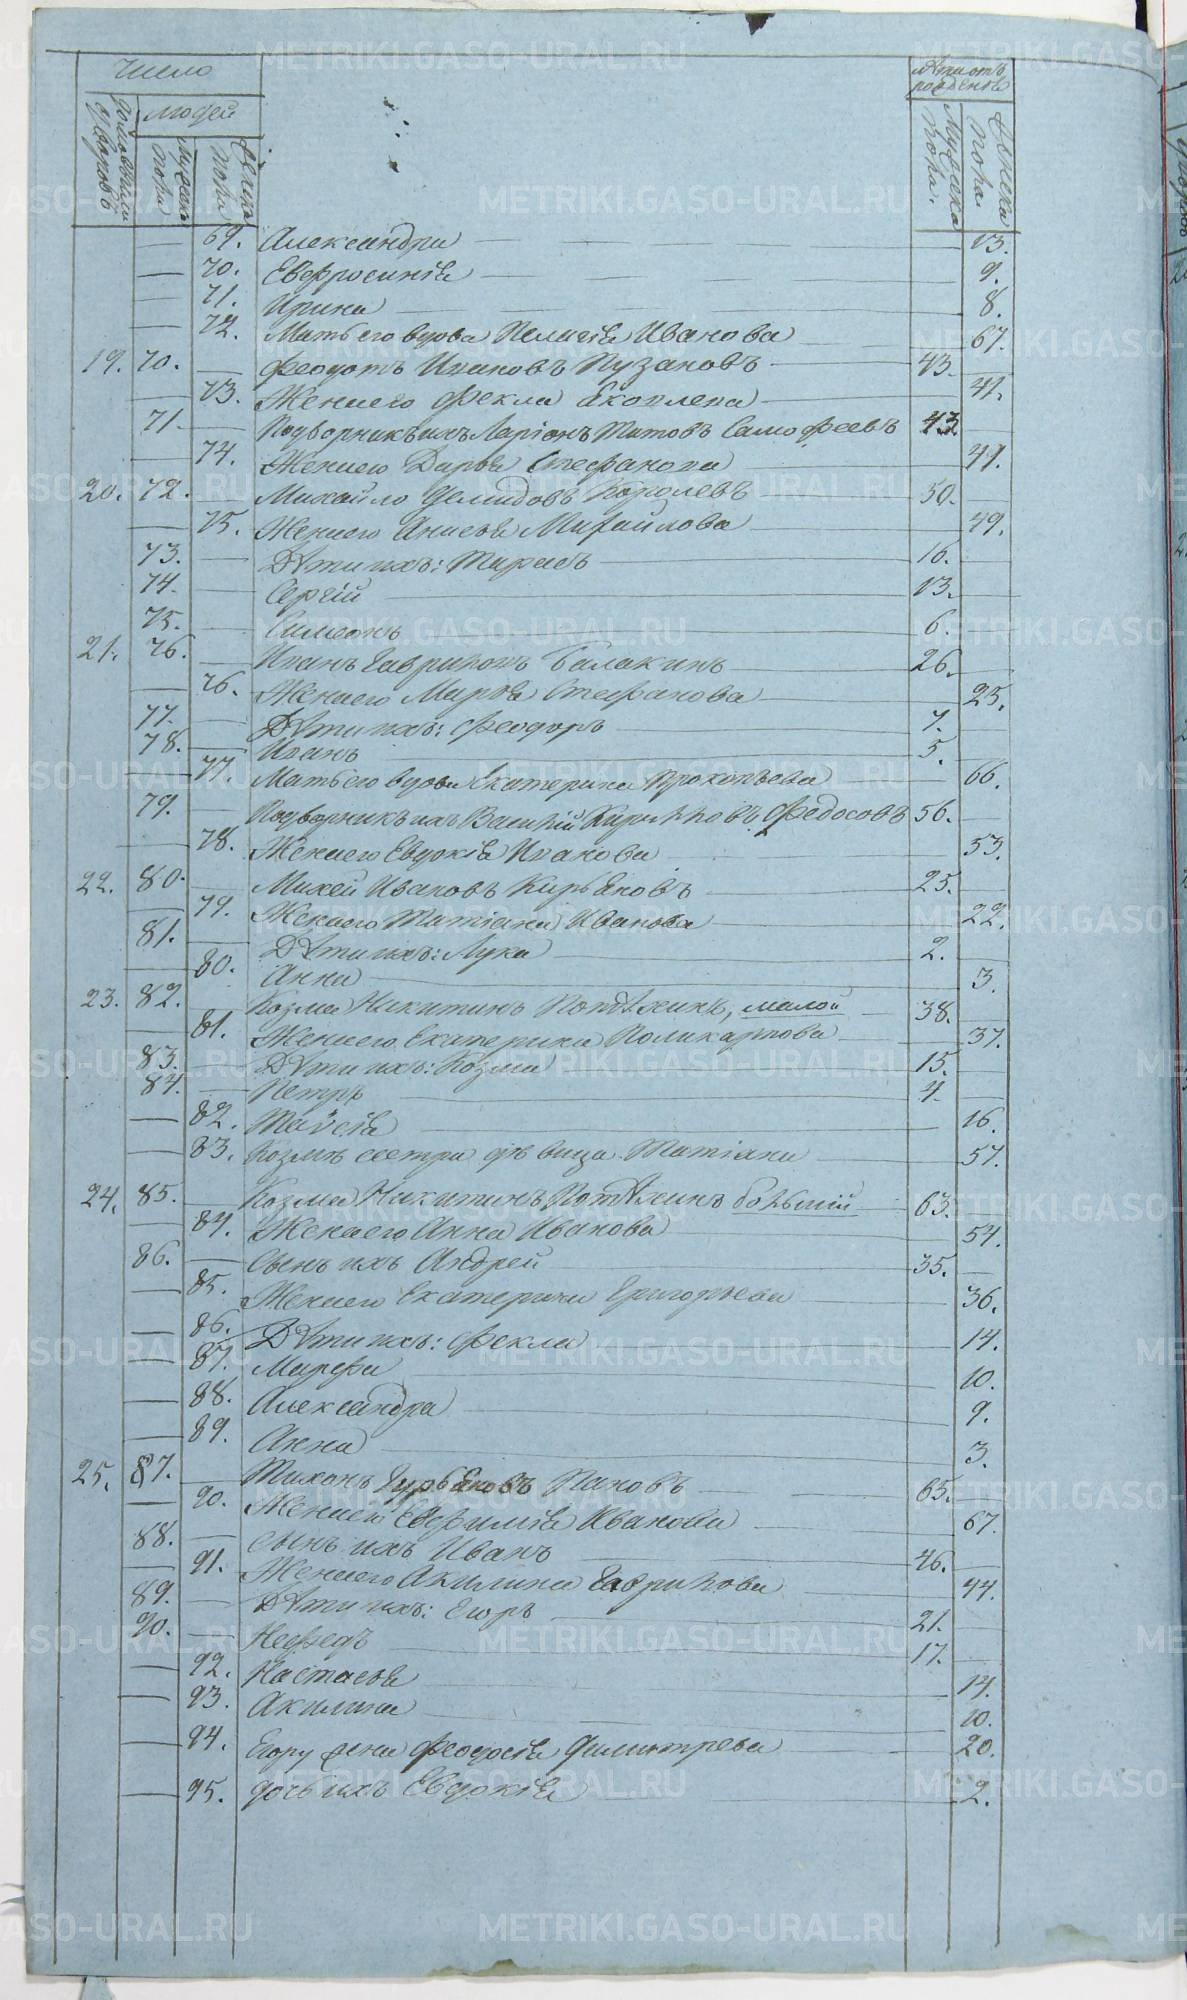 Число
Людей
Лѣта отъ рожденія
домовыми дворовъ
Мужеск. пола
Женск. пола
Мужеска пола.
Женска пола.
69. Александра 13.
70. Евфросинія 9.
71. Ирина 8.
72. Мать его вдова Пелагія Иванова 67.
19. 70. Феодотъ Ивановъ Пузановъ 43.
73. Жена его Фекла Яковлева 41.
71. Подворникъ ихъ Ларіонъ Титовъ Самофеевъ 43.
74. Жена его Дарья Стефанова 41.
20. 72. Михайло Демидовъ Королевъ 50.
75. Жена его Анисья Михайлова 49.
73. Дѣти ихъ: Тарасъ 16.
74. Сергій 13.
75. Симеонъ 6.
21. 76. Иванъ Гавриловъ Балакинъ 26.
76. Жена его Марья Стефанова 25.
77. Дѣти ихъ: Феодоръ 7.
78. Иванъ 5.
77. Мать его вдова Екатерина Прокопьева 66.
79. Подворникъ ихъ Василій Кириловъ Федосовъ 56.
78. Жена его Евдокія Иванова 53.
22. 80. Михей Ивановъ Кирьяновъ 25.
79. Жена его Татіана Иванова 22.
81. Дѣти ихъ: Лука 2.
80. Анна 3.
23. 82. Козма Никитинъ Потѣхинъ, малой 38.
81. Жена его Екатерина Поликарпова 37.
83. Дѣти ихъ: Козма 15.
84. Петръ 4.
82. Таисія 16.
83. Козмѣ сестра дѣвица Татіана 57.
24. 85. Козма Никитинъ Потѣхинъ большій 63.
84. Жена его Анна Иванова 54.
86. Сынъ ихъ Андрей 35.
85. Жена его Екатерина Григорьева 36.
86. Дѣти ихъ: Фекла 14.
87. Марфа 10.
88. Александра 9.
89. Анна 3.
25. 87. Тихонъ Гурьяновъ Пановъ 65.
90. Жена его Евфимія Иванова 67.
88. Сынъ ихъ Иванъ 46.
91. Жена его Акилина Гаврилова 44.
89. Дѣти ихъ: Егоръ 21.
90. Нефедъ 17.
92. Настасья 14.
93. Акилина 10.
94. Егору жена Феодосія Димитрева 20.
95. дочь ихъ Евдокія 2.
METRIKI.GASO-URAL.RU